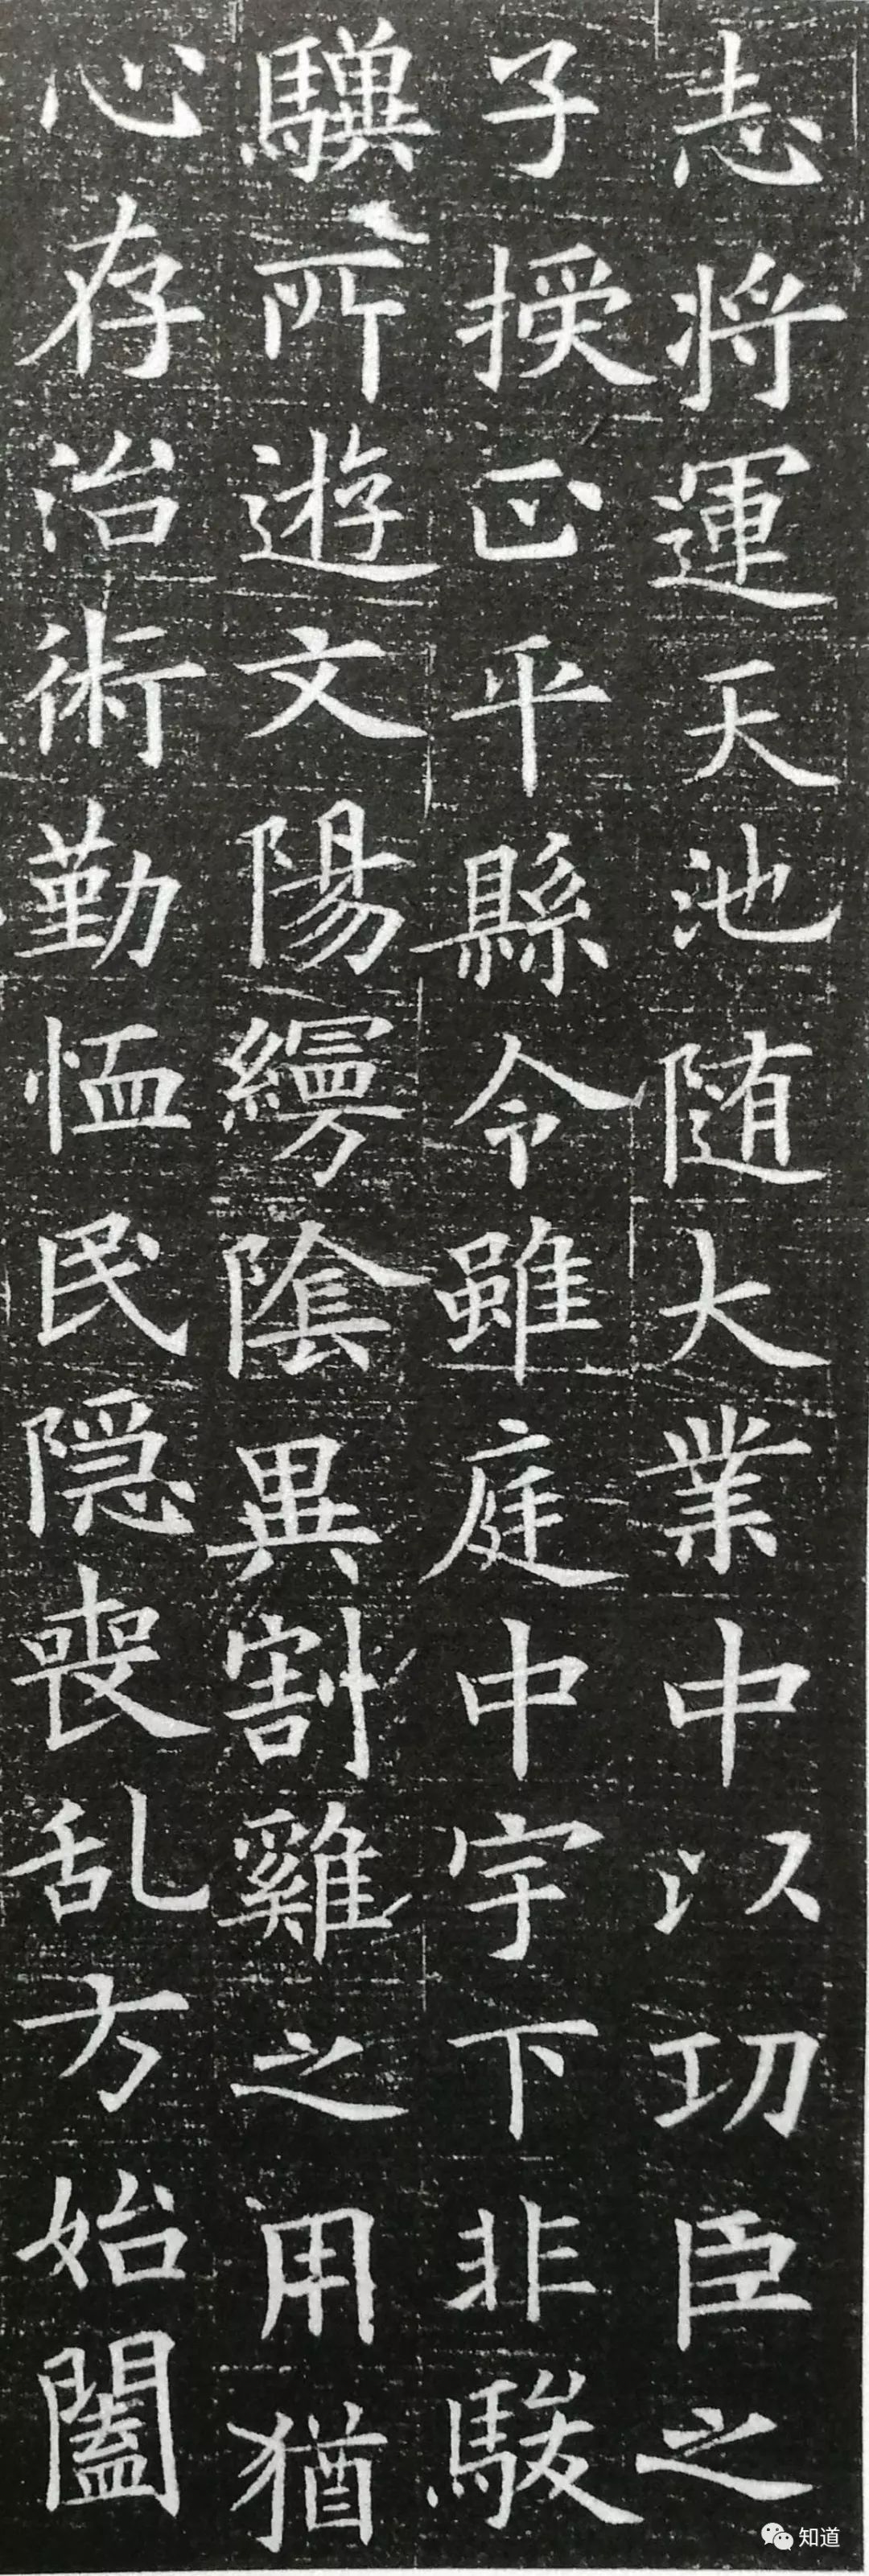 志将運天池随大業中以功臣之
子授正平縣令雖庭中宇下非駿
驥所遊文陽縵陰異割雞之用猶
心存治術勤恤民隠喪乱方始闔
知道